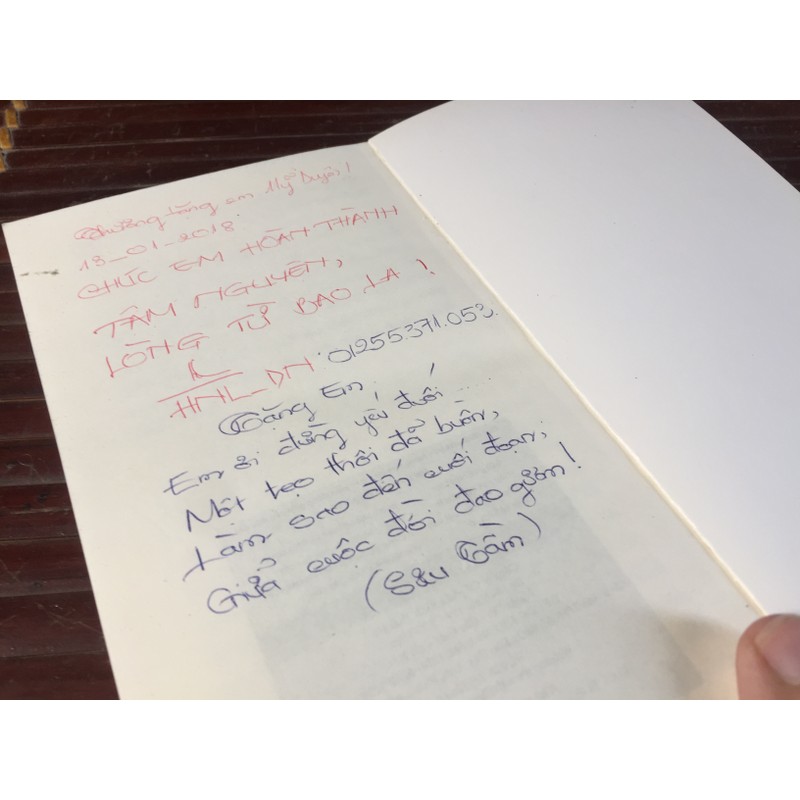 Thương tặng em Mỹ Duyên!
13-01-2018.
CHÚC EM HOÀN THÀNH
TÂM NGUYỆN,
LÒNG TỪ BAO LA!
HNL-DN: 01255.371.053.
Tặng Em.
Em ơi đừng yếu đuối....
Một tẹo thôi đã buồn,
Làm sao đến cuối đoạn,
Giữa cuộc đời đao gươm!
(Sáu Tâm)